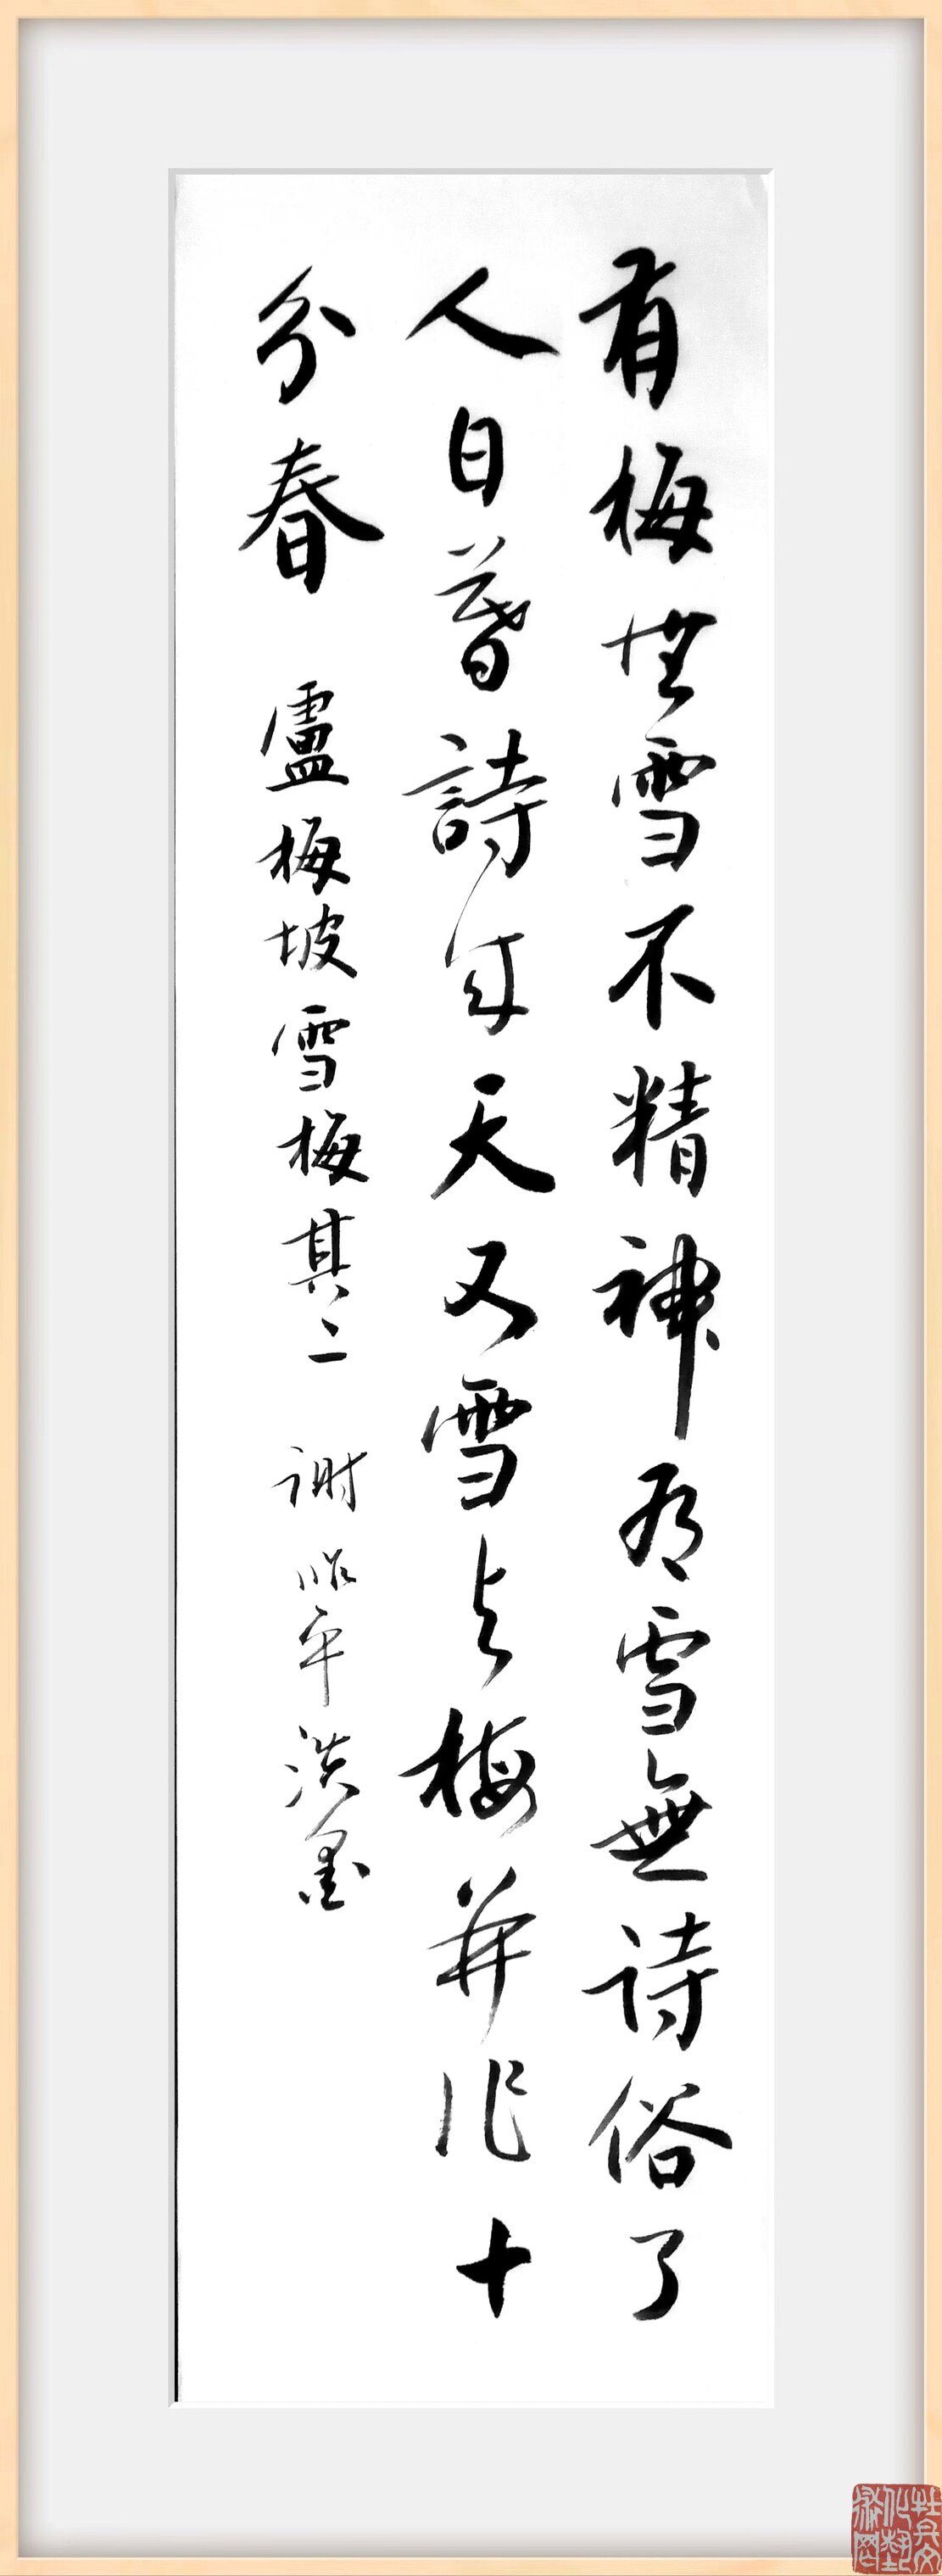 有梅無雪不精神有雪無詩俗了
人日暮詩成天又雪与梅并作十
分春 盧梅坡雪梅其二 谢昭平 墨
牡丹文化藝術网